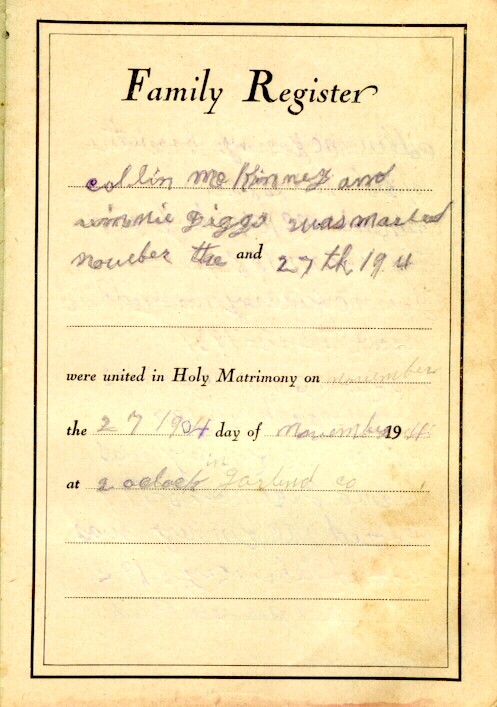 Family Register
collin mcKinney and
Diggs was maried
November the and 27th 19.4
were united in Holy Matrimony on November
the 27 1904 day of November 1904
at 2 oclock in Garlend co